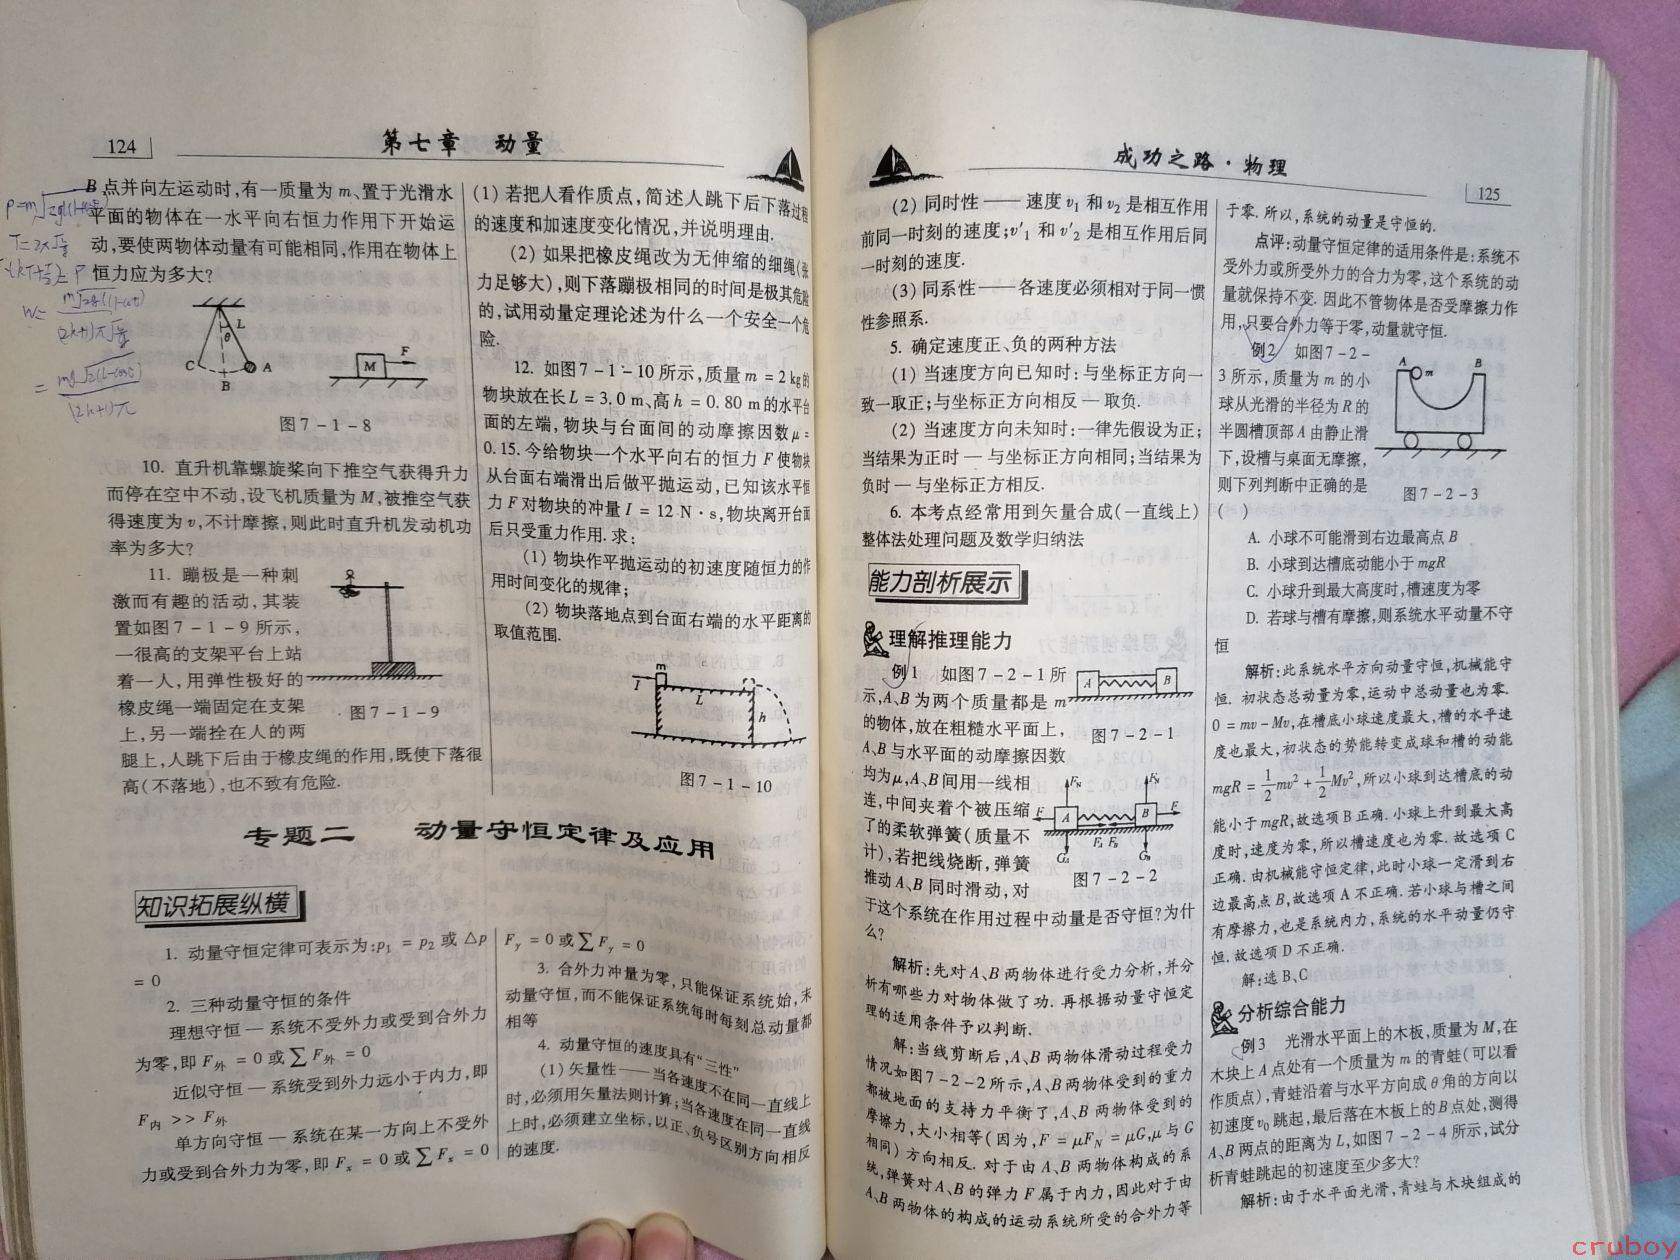 124
第七章 动量
B点并向左运动时,有一质量为 m、置于光滑水
平面的物体在一水平向右恒力作用下开始运
动,要使两物体动量有可能相同,作用在物体上
恒力应为多大?
L
θ
C
A
B
M
F
图 7-1-8
10. 直升机靠螺旋桨向下推空气获得升力
而停在空中不动,设飞机质量为 M,被推空气获
得速度为 v,不计摩擦,则此时直升机发动机功
率为多大?
11. 蹦极是一种刺
激而有趣的活动,其装
置如图 7-1-9 所示,
一很高的支架平台上站
着一人,用弹性极好的
橡皮绳一端固定在支架
上,另一端拴在人的两
腿上,人跳下后由于橡皮绳的作用,既使下落很
高(不落地),也不致有危险.
图 7-1-9
(1) 若把人看作质点,简述人跳下后下落过程
的速度和加速度变化情况,并说明理由.
(2) 如果把橡皮绳改为无伸缩的细绳(张
力足够大),则下落蹦极相同的时间是极其危险
的,试用动量定理论述为什么一个安全一个危
险.
12. 如图 7-1-10 所示,质量 m = 2 kg 的
物块放在长 L = 3.0 m、高 h = 0.80 m 的水平台
面的左端,物块与台面间的动摩擦因数 μ =
0.15. 今给物块一个水平向右的恒力 F 使物块
从台面右端滑出后做平抛运动,已知该水平恒
力 F 对物块的冲量 I = 12 N·s,物块离开台面
后只受重力作用.求:
(1) 物块作平抛运动的初速度随恒力的作
用时间变化的规律;
(2) 物块落地点到台面右端的水平距离的
取值范围.
m
I
L
h
图 7-1-10
专题二 动量守恒定律及应用
知识拓展纵横
1. 动量守恒定律可表示为:p₁ = p₂ 或 △p
= 0
2. 三种动量守恒的条件
理想守恒 — 系统不受外力或受到合外力
为零,即 F外 = 0 或 ∑F外 = 0
近似守恒 — 系统受到外力远小于内力,即
F内 >> F外
单方向守恒 — 系统在某一方向上不受外
力或受到合外力为零,即 Fₓ = 0 或 ∑Fₓ = 0
Fy = 0 或 ∑Fy = 0
3. 合外力冲量为零,只能保证系统始,末
动量守恒,而不能保证系统每时每刻总动量都
相等
4. 动量守恒的速度具有“三性”
(1) 矢量性 —— 当各速度不在同一直线上
时,必须用矢量法则计算;当各速度在同一直线
上时,必须建立坐标,以正、负号区别方向相反
的速度.
成功之路·物理
125
(2) 同时性 —— 速度 v₁ 和 v₂ 是相互作用
前同一时刻的速度;v′₁ 和 v′₂ 是相互作用后同
一时刻的速度.
(3) 同系性 —— 各速度必须相对于同一惯
性参照系.
5. 确定速度正、负的两种方法
(1) 当速度方向已知时:与坐标正方向一
致一取正;与坐标正方向相反 — 取负.
(2) 当速度方向未知时:一律先假设为正;
当结果为正时 — 与坐标正方向相同;当结果为
负时 — 与坐标正方相反.
6. 本考点经常用到矢量合成(一直线上)
整体法处理问题及数学归纳法
能力剖析展示
理解推理能力
例1 如图 7-2-1 所
示,A、B 为两个质量都是 m
的物体,放在粗糙水平面上,
A、B 与水平面的动摩擦因数
均为 μ,A、B 间用一线相
连,中间夹着个被压缩
了的柔软弹簧(质量不
计),若把线烧断,弹簧
推动 A、B 同时滑动,对
于这个系统在作用过程中动量是否守恒?为什
么?
A
B
图 7-2-1
FN
FN
F
A
B
F
FA
FB
GA
GB
图 7-2-2
解析:先对 A、B 两物体进行受力分析,并分
析有哪些力对物体做了功.再根据动量守恒定
理的适用条件予以判断.
解:当线剪断后,A、B 两物体滑动过程受力
情况如图 7-2-2 所示,A、B 两物体受到的重力
都被地面的支持力平衡了,A、B 两物体受到的
摩擦力,大小相等(因为,F = μFN = μG,μ 与 G
相同) 方向相反.对于由 A、B 两物体构成的系
统,弹簧对 A、B 的弹力 F 属于内力,因此对于由
A、B 两物体的构成的运动系统所受的合外力等
于零.所以,系统的动量是守恒的.
点评:动量守恒定律的适用条件是:系统不
受外力或所受外力的合力为零,这个系统的动
量就保持不变.因此不管物体是否受摩擦力作
用,只要合外力等于零,动量就守恒.
例2 如图 7-2-
3 所示,质量为 m 的小
球从光滑的半径为 R 的
半圆槽顶部 A 由静止滑
下,设槽与桌面无摩擦,
则下列判断中正确的是
( )
A
m
B
图 7-2-3
A. 小球不可能滑到右边最高点 B
B. 小球到达槽底动能小于 mgR
C. 小球升到最大高度时,槽速度为零
D. 若球与槽有摩擦,则系统水平动量不守
恒
解析:此系统水平方向动量守恒,机械能守
恒.初状态总动量为零,运动中总动量也为零.
0 = mv - Mv,在槽底小球速度最大,槽的水平速
度也最大,初状态的势能转变成球和槽的动能
mgR = 1/2 mv² + 1/2 Mv²,所以小球到达槽底的动
能小于 mgR,故选项 B 正确.小球上升到最大高
度时,速度为零,所以槽速度也为零.故选项 C
正确.由机械能守恒定律,此时小球一定滑到右
边最高点 B,故选项 A 不正确.若小球与槽之间
有摩擦力,也是系统内力,系统的水平动量仍守
恒.故选项 D 不正确.
解:选 B、C
分析综合能力
例3 光滑水平面上的木板,质量为 M,在
木块上 A 点处有一个质量为 m 的青蛙(可以看
作质点),青蛙沿着与水平方向成 θ 角的方向以
初速度 v₀ 跳起,最后落在木板上的 B 点处,测得
A、B 两点的距离为 L,如图 7-2-4 所示,试分
析青蛙跳起的初速度至少多大?
解析:由于水平面光滑,青蛙与木块组成的
cruboy